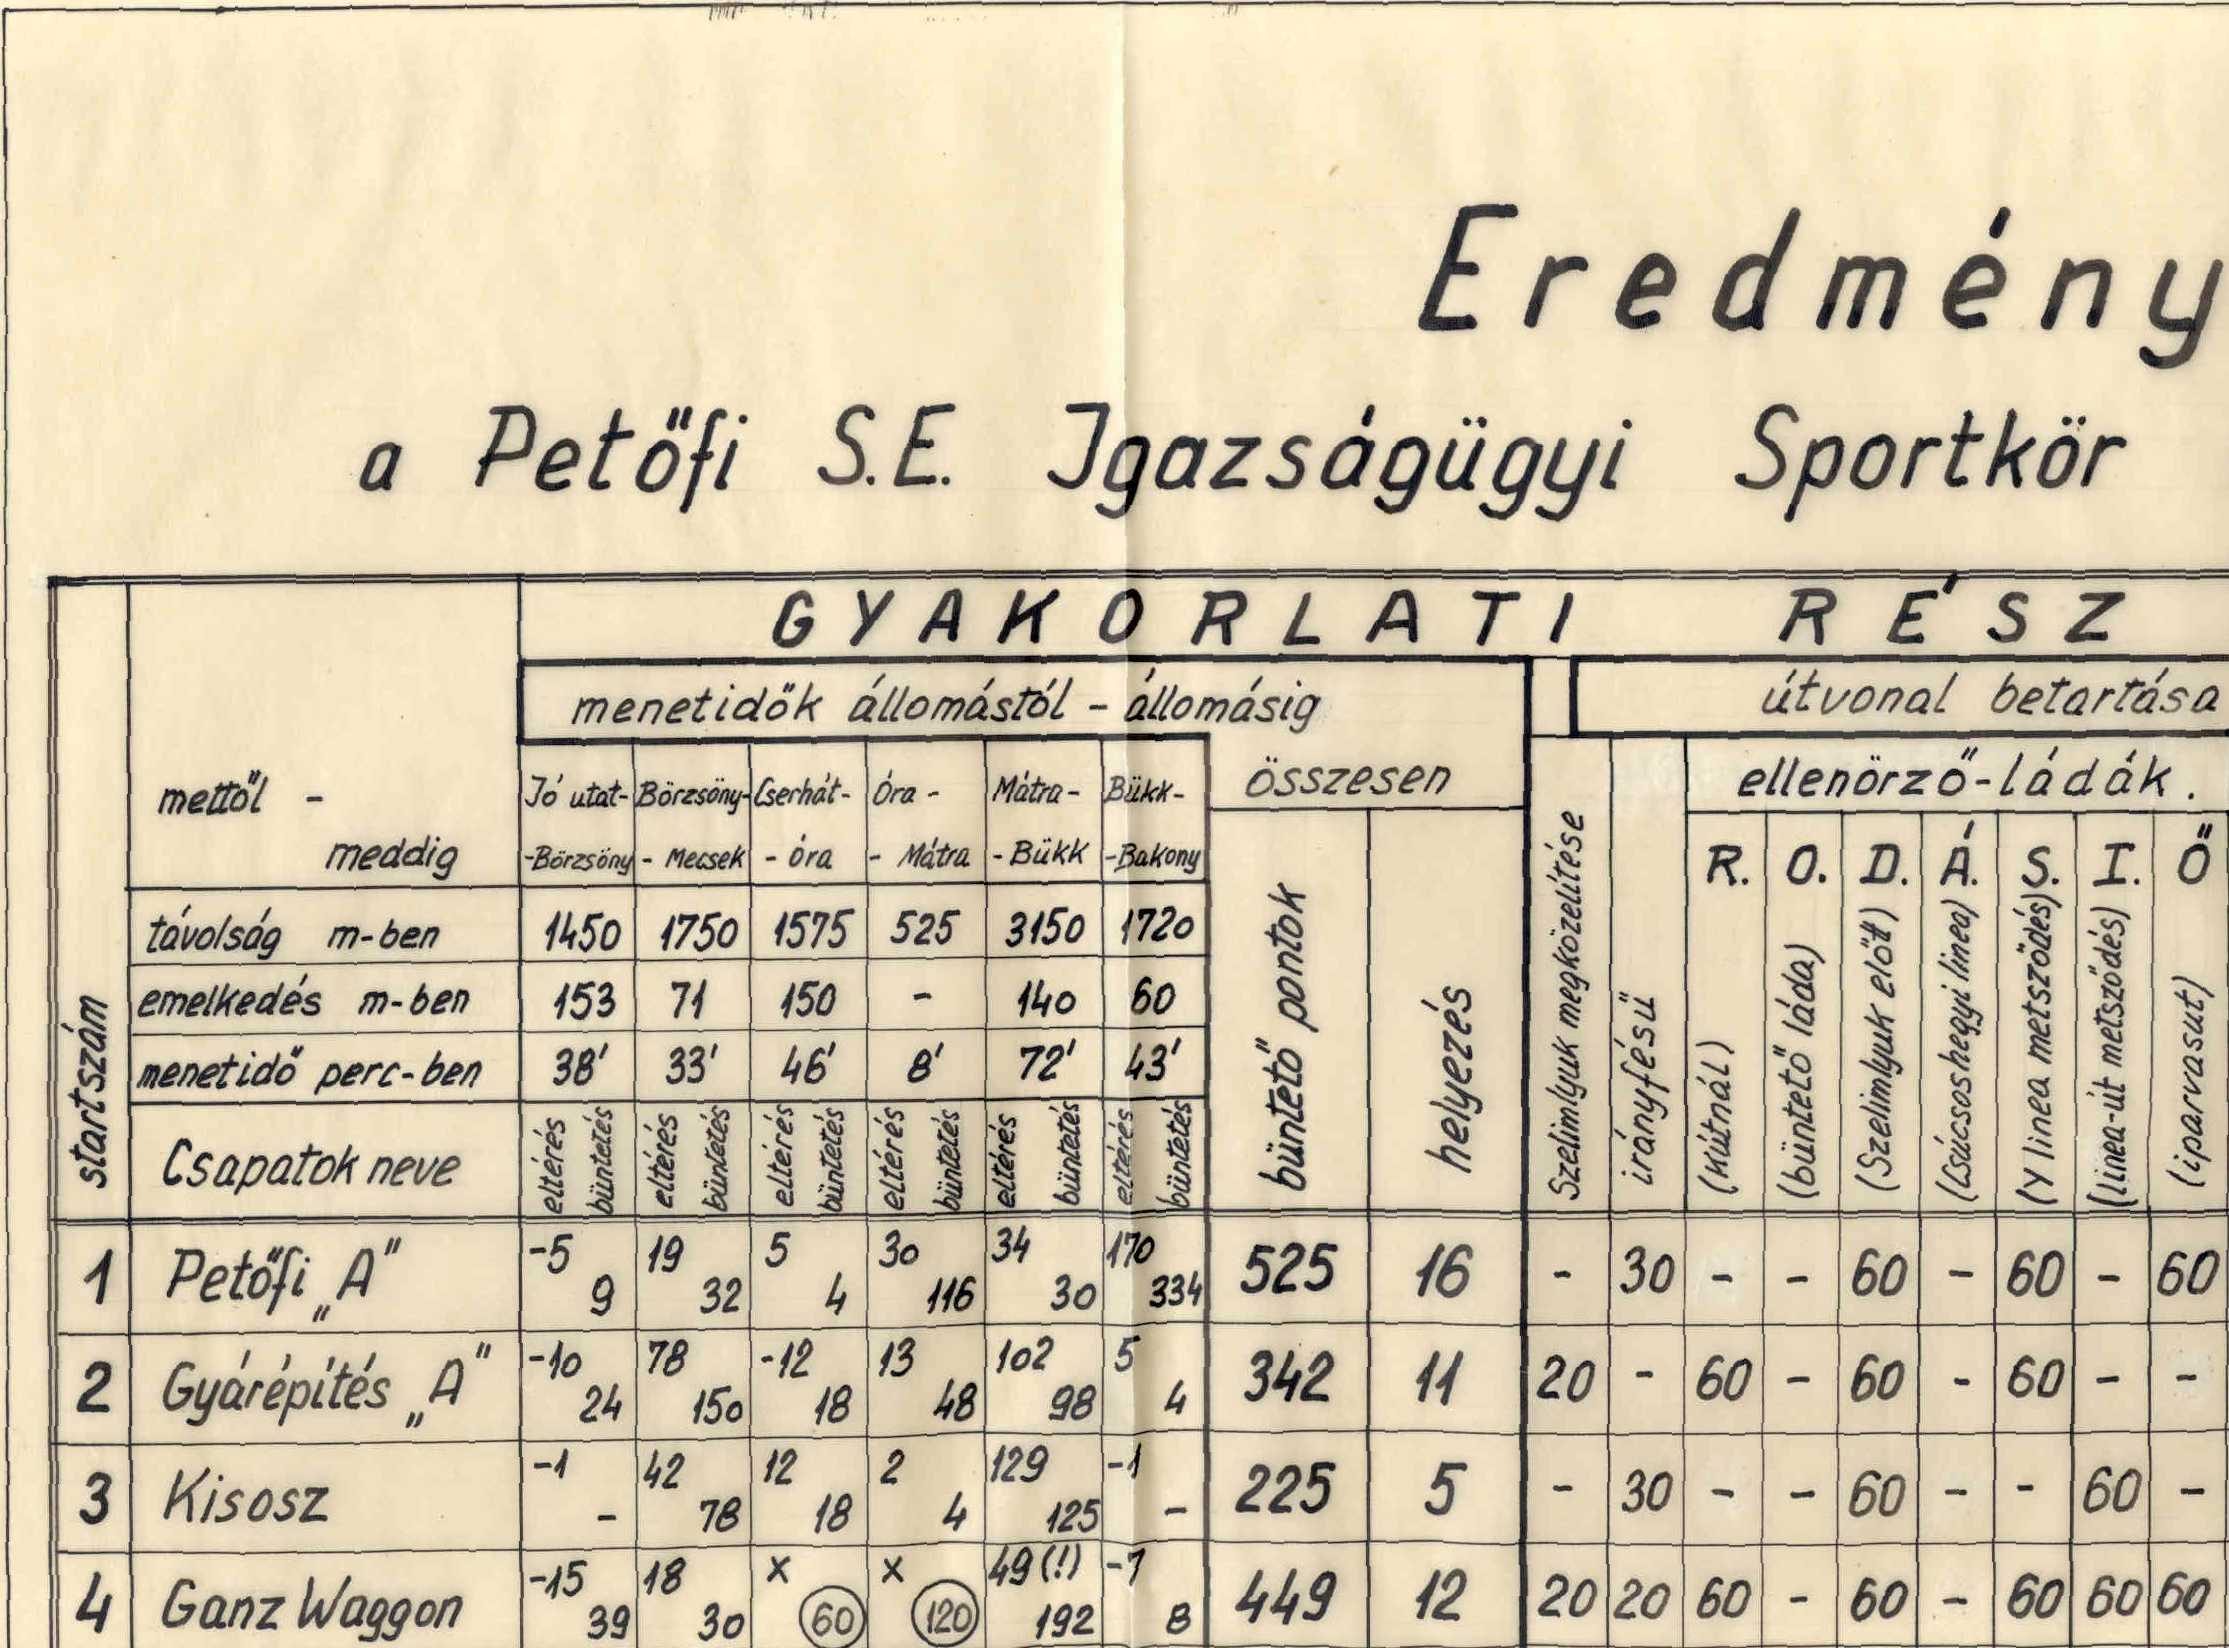 Eredmény
a Petőfi S.E. Igazságügyi Sportkör
GYAKORLATI RÉSZ
menetidők állomástól - állomásig
útvonal betartása
összesen
ellenőrző-ládák.
mettől - meddig
Jó utat- -Börzsöny
Börzsöny- - Mecsek
Cserhát- - óra
Óra - - Mátra
Mátra - - Bükk
Bükk- -Bakony
R. O. D. Á. S. I. Ő
távolság m-ben 1450 1750 1575 525 3150 1720
emelkedés m-ben 153 71 150 - 140 60
menetidő perc-ben 38' 33' 46' 8' 72' 43'
startszám
Csapatok neve
eltérés büntetés eltérés büntetés eltérés büntetés eltérés büntetés eltérés büntetés eltérés büntetés
büntető pontok
helyezés
Szelimlyuk megközelítése
irányfésü
(kútnál)
(büntető láda)
(Szelimlyuk előtt)
(Csúcsoshegyi linea)
(Y linea metsződés)
(linea-út metsződés)
(iparvasut)
1 Petőfi „A" -5 9 19 32 5 4 30 116 34 30 170 334 525 16 - 30 - - 60 - 60 - 60
2 Gyárépítés „A" -10 24 78 150 -12 18 13 48 102 98 5 4 342 11 20 - 60 - 60 - 60 - -
3 Kisosz -1 - 42 78 12 18 2 4 129 125 -1 - 225 5 - 30 - - 60 - - 60 -
4 Ganz Waggon -15 39 18 30 x 60 x 120 49(!) 192 -7 8 449 12 20 20 60 - 60 - 60 60 60